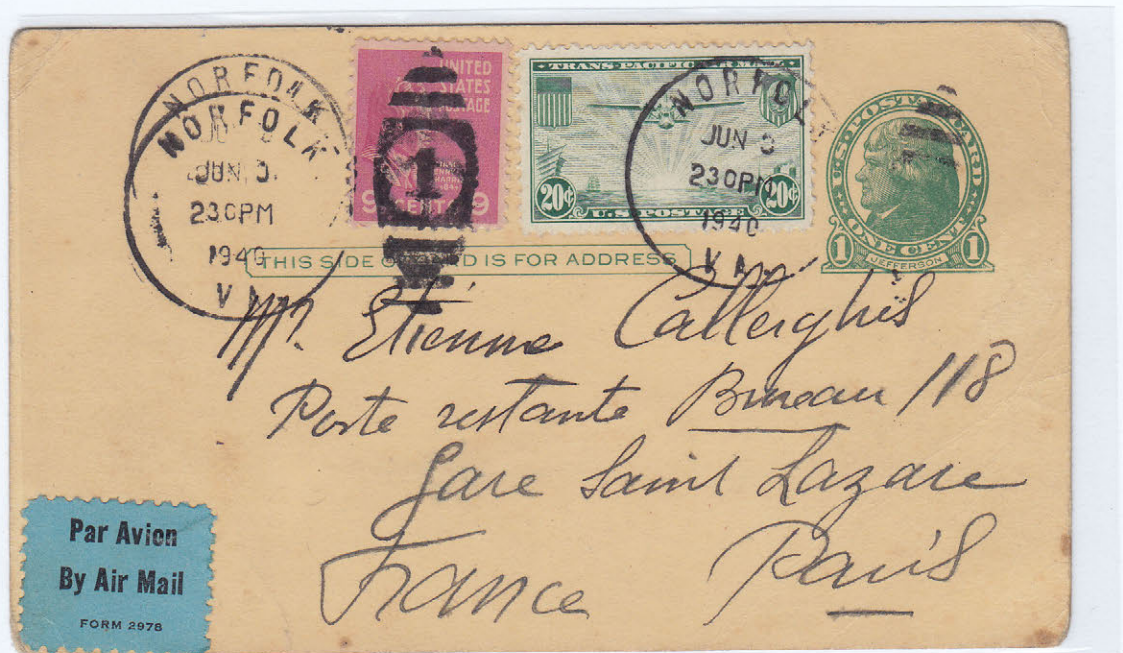 NORFOLK
NORFOLK
JUN 3
230PM
1940
VA.
UNITED
STATES
POSTAGE
9 CENTS 9
1
TRANS-PACIFIC AIR MAIL
20¢ 20¢
U.S. POSTAGE
NORFOLK
JUN 3
230PM
1940
VA.
U.S. POSTAL CARD
1 ONE CENT 1
JEFFERSON
THIS SIDE OF CARD IS FOR ADDRESS
Mr. Etienne Callerghis
Poste restante Bureau 118
Gare Saint Lazare
France Paris
Par Avion
By Air Mail
FORM 2978